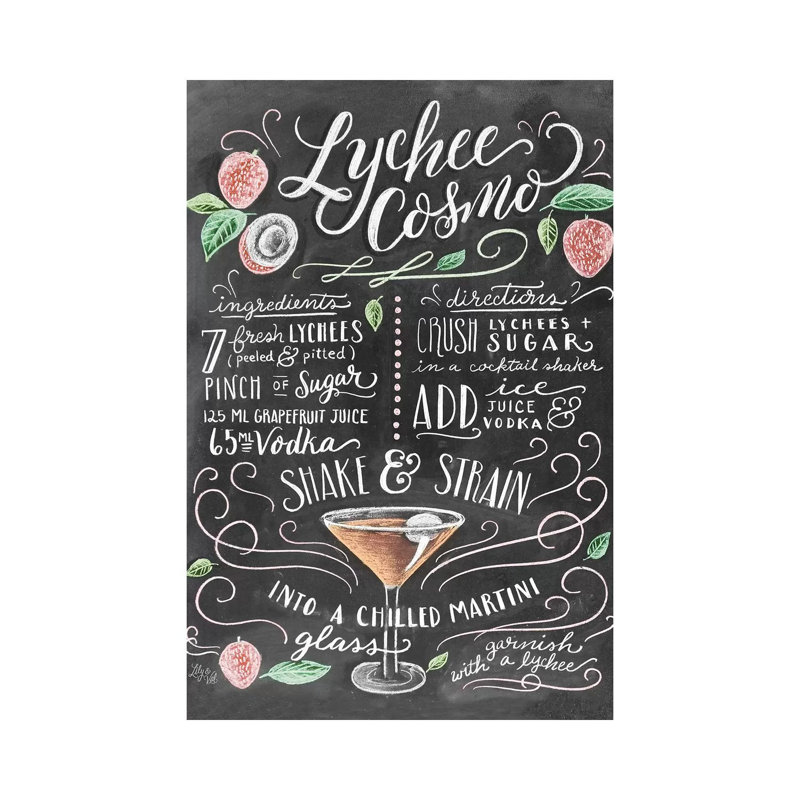 Lychee
Cosmo
ingredients
7 fresh LYCHEES
(peeled & pitted)
PINCH OF Sugar
125 ML GRAPEFRUIT JUICE
65 ML Vodka
directions
CRUSH LYCHEES +
SUGAR
in a cocktail shaker
ADD ice
JUICE &
VODKA
SHAKE & STRAIN
INTO A CHILLED MARTINI
glass
garnish
with a lychee
Lily &
Val